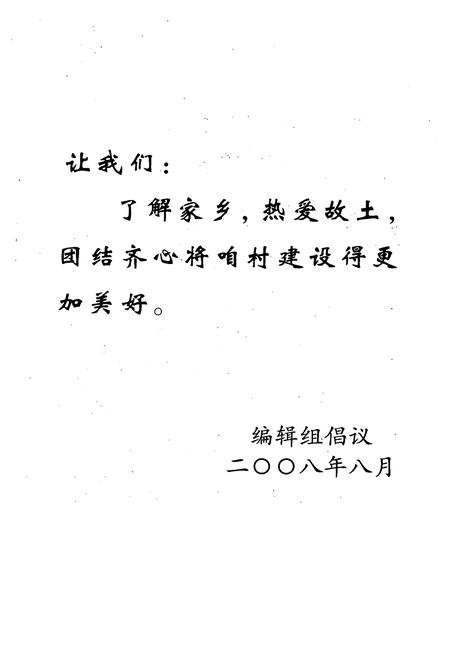 让我们：
了解家乡，热爱故土，
团结齐心将咱村建设得更
加美好。
编辑组倡议
二〇〇八年八月